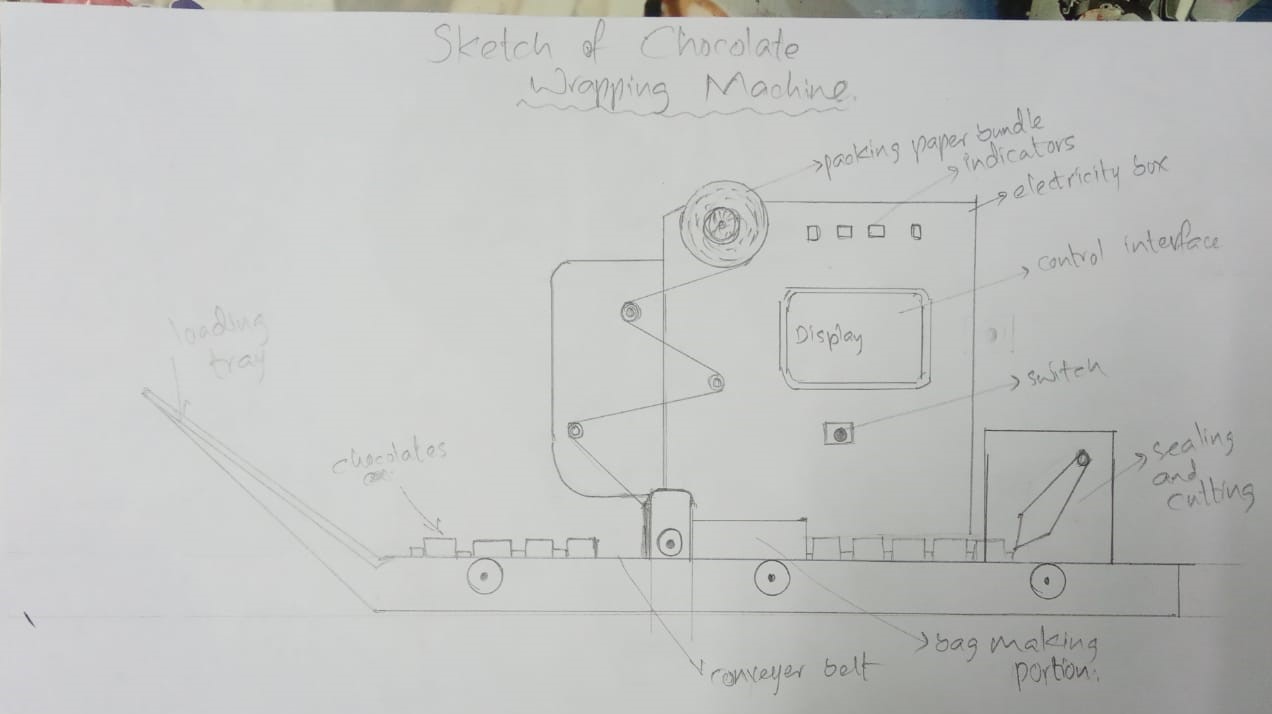 Sketch of Chocolate
Wrapping Machine.
packing paper bundle
indicators
electricity box
control interface
Display
switch
loading
tray
chocolates
sealing
and
cutting
bag making
portion.
conveyer belt